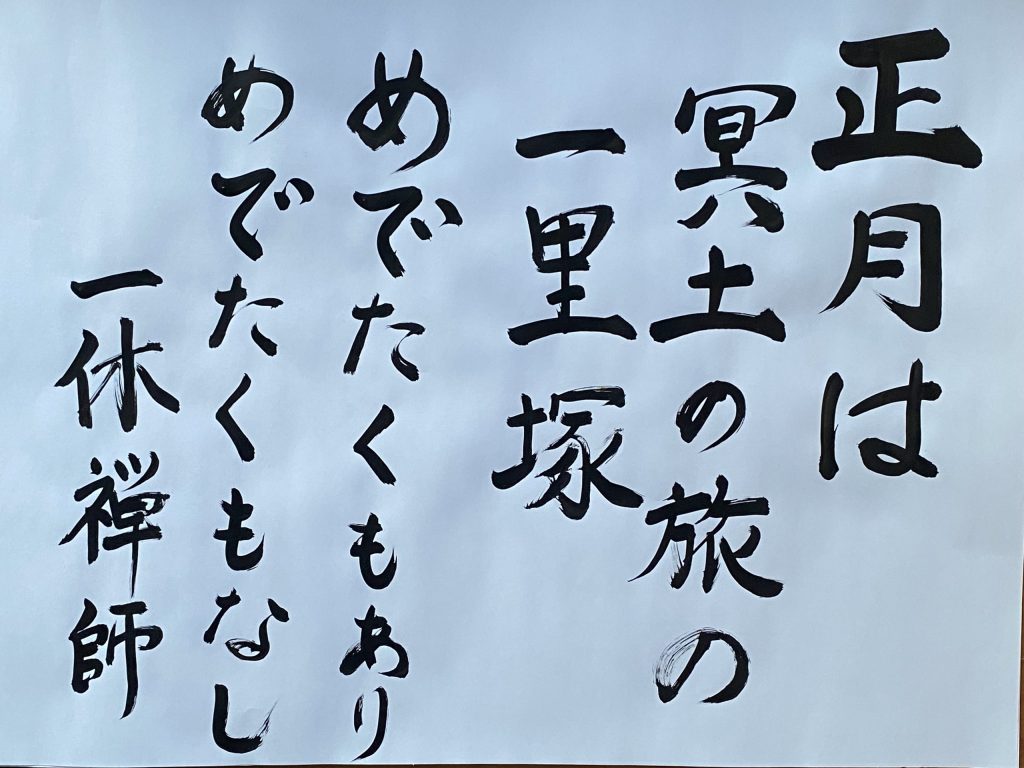 正月は
冥土の旅の
一里塚
めでたくもあり
めでたくもなし
一休禅師